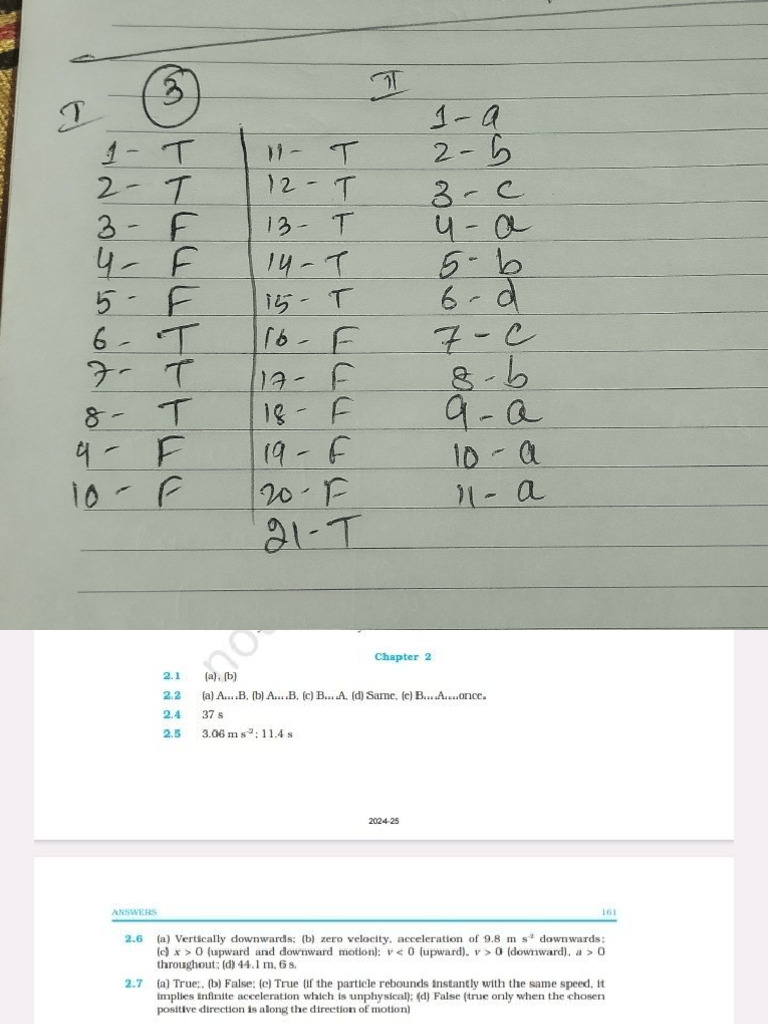 3
I
II
1 - T
2 - T
3 - F
4 - F
5 - F
6 - T
7 - T
8 - T
9 - F
10 - F
11 - T
12 - T
13 - T
14 - T
15 - T
16 - F
17 - F
18 - F
19 - F
20 - F
21 - T
1 - a
2 - b
3 - c
4 - a
5 - b
6 - d
7 - c
8 - b
9 - a
10 - a
11 - a
Chapter 2
2.1 (a), (b)
2.2 (a) A....B, (b) A....B, (c) B....A, (d) Same, (e) B....A....once.
2.4 37 s
2.5 3.06 m s⁻²; 11.4 s
2024-25
ANSWERS 161
2.6 (a) Vertically downwards; (b) zero velocity, acceleration of 9.8 m s⁻² downwards;
(c) x > 0 (upward and downward motion); v < 0 (upward), v > 0 (downward), a > 0
throughout; (d) 44.1 m, 6 s.
2.7 (a) True;, (b) False; (c) True (if the particle rebounds instantly with the same speed, it
implies infinite acceleration which is unphysical); (d) False (true only when the chosen
positive direction is along the direction of motion)